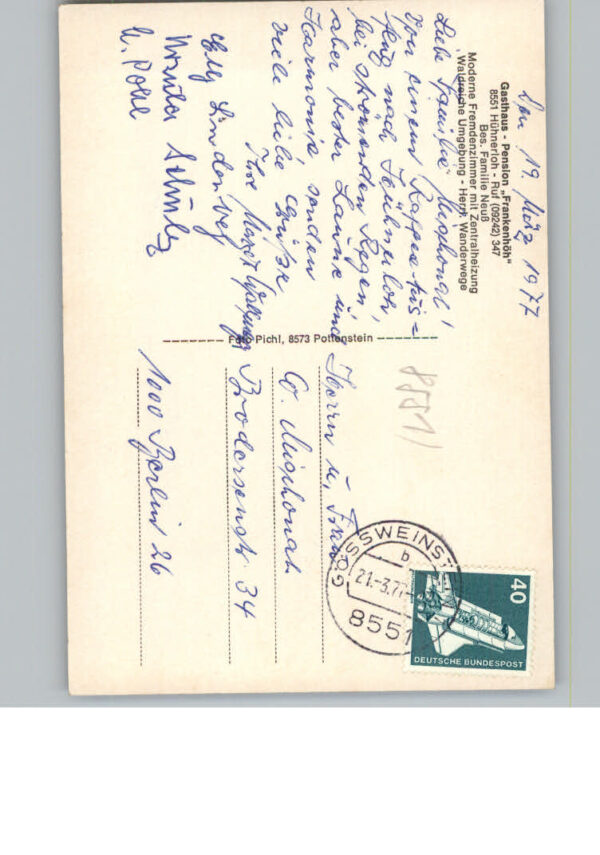 Den 19. März 1977
Gasthaus - Pension „Frankenhöh"
8551 Hühnerloh - Ruf (09242) 347
Bes. Familie Neuß
Moderne Fremdenzimmer mit Zentralheizung
Waldreiche Umgebung - Herrl. Wanderwege
Liebe Familie
Von einem Kaffee Aus=
flug nach Hühnerloh
bei strömenden Regen,
aber bester Laune und
Harmonie senden
viele liebe Grüße
Ihre
Elly Lindenweg
Ursula Schulz
U. Pohl
Foto Pichl, 8573 Pottenstein
Herrn u. Frau
G.
Brodersenstr. 34
1000 Berlin 26
8551
GÖSSWEINST
b
21.-3.77
8551
40
DEUTSCHE BUNDESPOST